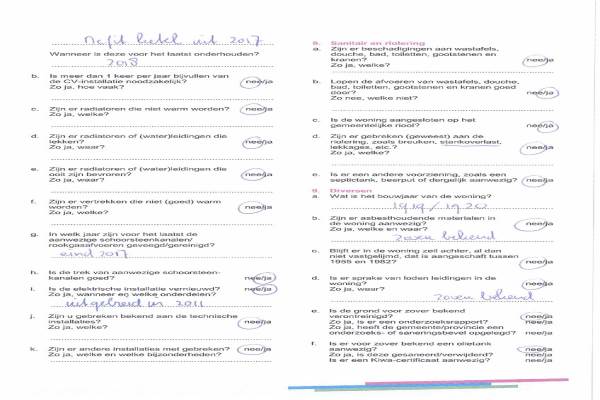 Nefit ketel uit 2017
Wanneer is deze voor het laatst onderhouden?
2018
b. Is meer dan 1 keer per jaar bijvullen van
de CV-installatie noodzakelijk? nee/ja
Zo ja, hoe vaak?
c. Zijn er radiatoren die niet warm worden? nee/ja
Zo ja, welke?
d. Zijn er radiatoren of (water)leidingen die
lekken? nee/ja
Zo ja, waar?
e. Zijn er radiatoren of (water)leidingen die
ooit zijn bevroren? nee/ja
Zo ja, welke?
f. Zijn er vertrekken die niet (goed) warm
worden? nee/ja
Zo ja, welke?
g. In welk jaar zijn voor het laatst de
aanwezige schoorsteenkanalen/
rookgasafvoeren geveegd/gereinigd?
eind 2017
h. Is de trek van aanwezige schoorsteen-
kanalen goed? nee/ja
i. Is de elektrische installatie vernieuwd? nee/ja
Zo ja, wanneer en welke onderdelen?
uitgebreid in 2011
j. Zijn u gebreken bekend aan de technische
installaties? nee/ja
Zo ja, welke?
k. Zijn er andere installaties met gebreken? nee/ja
Zo ja, welke en welke bijzonderheden?
8. Sanitair en riolering
a. Zijn er beschadigingen aan wastafels,
douche, bad, toiletten, gootstenen en
kranen? nee/ja
Zo ja, welke?
b. Lopen de afvoeren van wastafels, douche,
bad, toiletten, gootstenen en kranen goed
door? nee/ja
Zo nee, welke niet?
c. Is de woning aangesloten op het
gemeentelijke riool? nee/ja
d. Zijn er gebreken (geweest) aan de
riolering, zoals breuken, stankoverlast,
lekkages, etc.? nee/ja
Zo ja, welke?
e. Is er een andere voorziening, zoals een
septictank, beerput of dergelijk aanwezig? nee/ja
9. Diversen
a. Wat is het bouwjaar van de woning?
1919/1920
b. Zijn er asbesthoudende materialen in
de woning aanwezig? nee/ja
Zo ja, welke en waar?
zover bekend
c. Blijft er in de woning zeil achter, al dan
niet vastgelijmd, dat is aangeschaft tussen
1955 en 1982? nee/ja
d. Is er sprake van loden leidingen in de
woning? nee/ja
Zo ja, waar?
zover bekend
e. Is de grond voor zover bekend
verontreinigd? nee/ja
Zo ja, is er een onderzoeksrapport? nee/ja
Zo ja, heeft de gemeente/provincie een
onderzoeks- of saneringsbevel opgelegd? nee/ja
f. Is er voor zover bekend een olietank
aanwezig? nee/ja
Zo ja, is deze gesaneerd/verwijderd? nee/ja
Is er een Kiwa-certificaat aanwezig? nee/ja